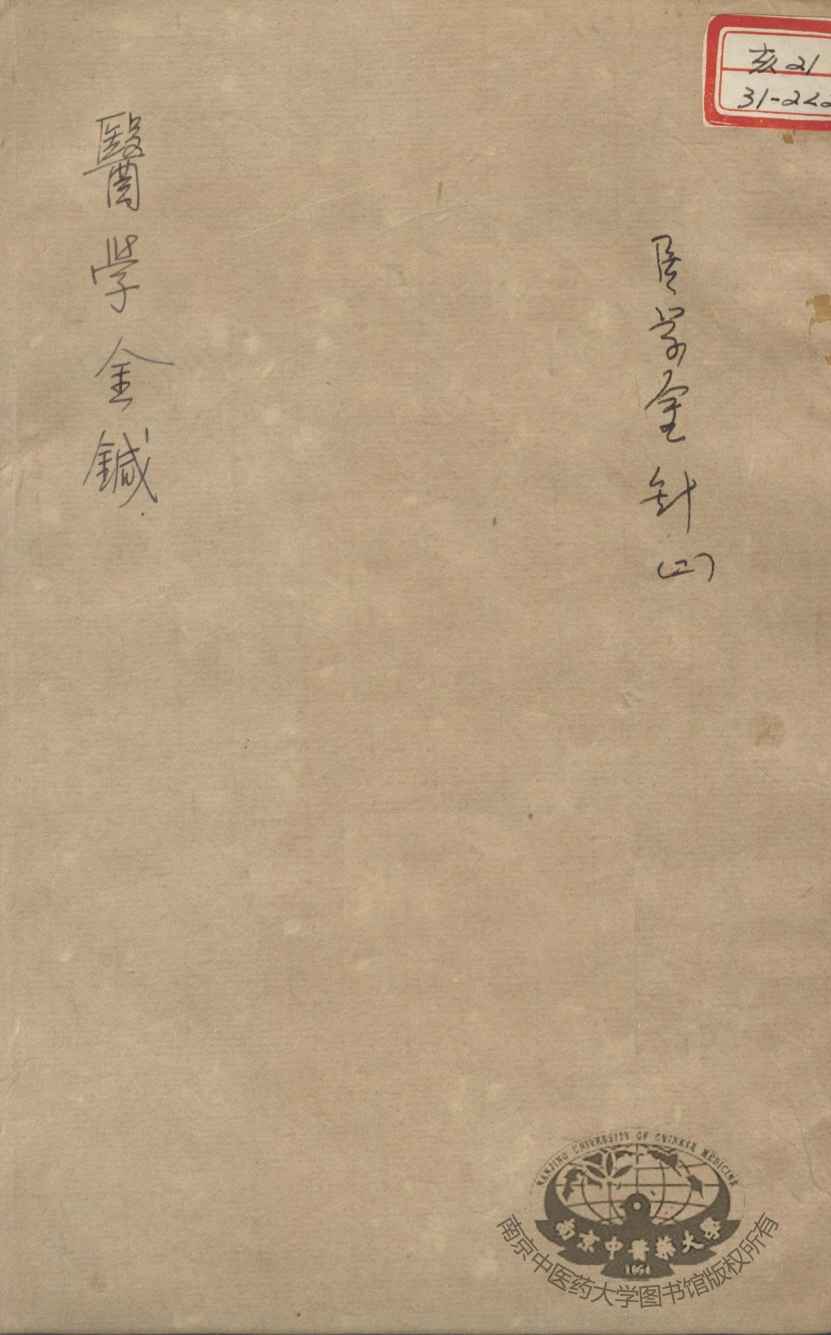 亥21
31-222
医学金针(二)
醫学金鍼
NANJING UNIVERSITY OF CHINESE MEDICINE
南京中醫藥大學
1954
南京中医药大学图书馆版权所有